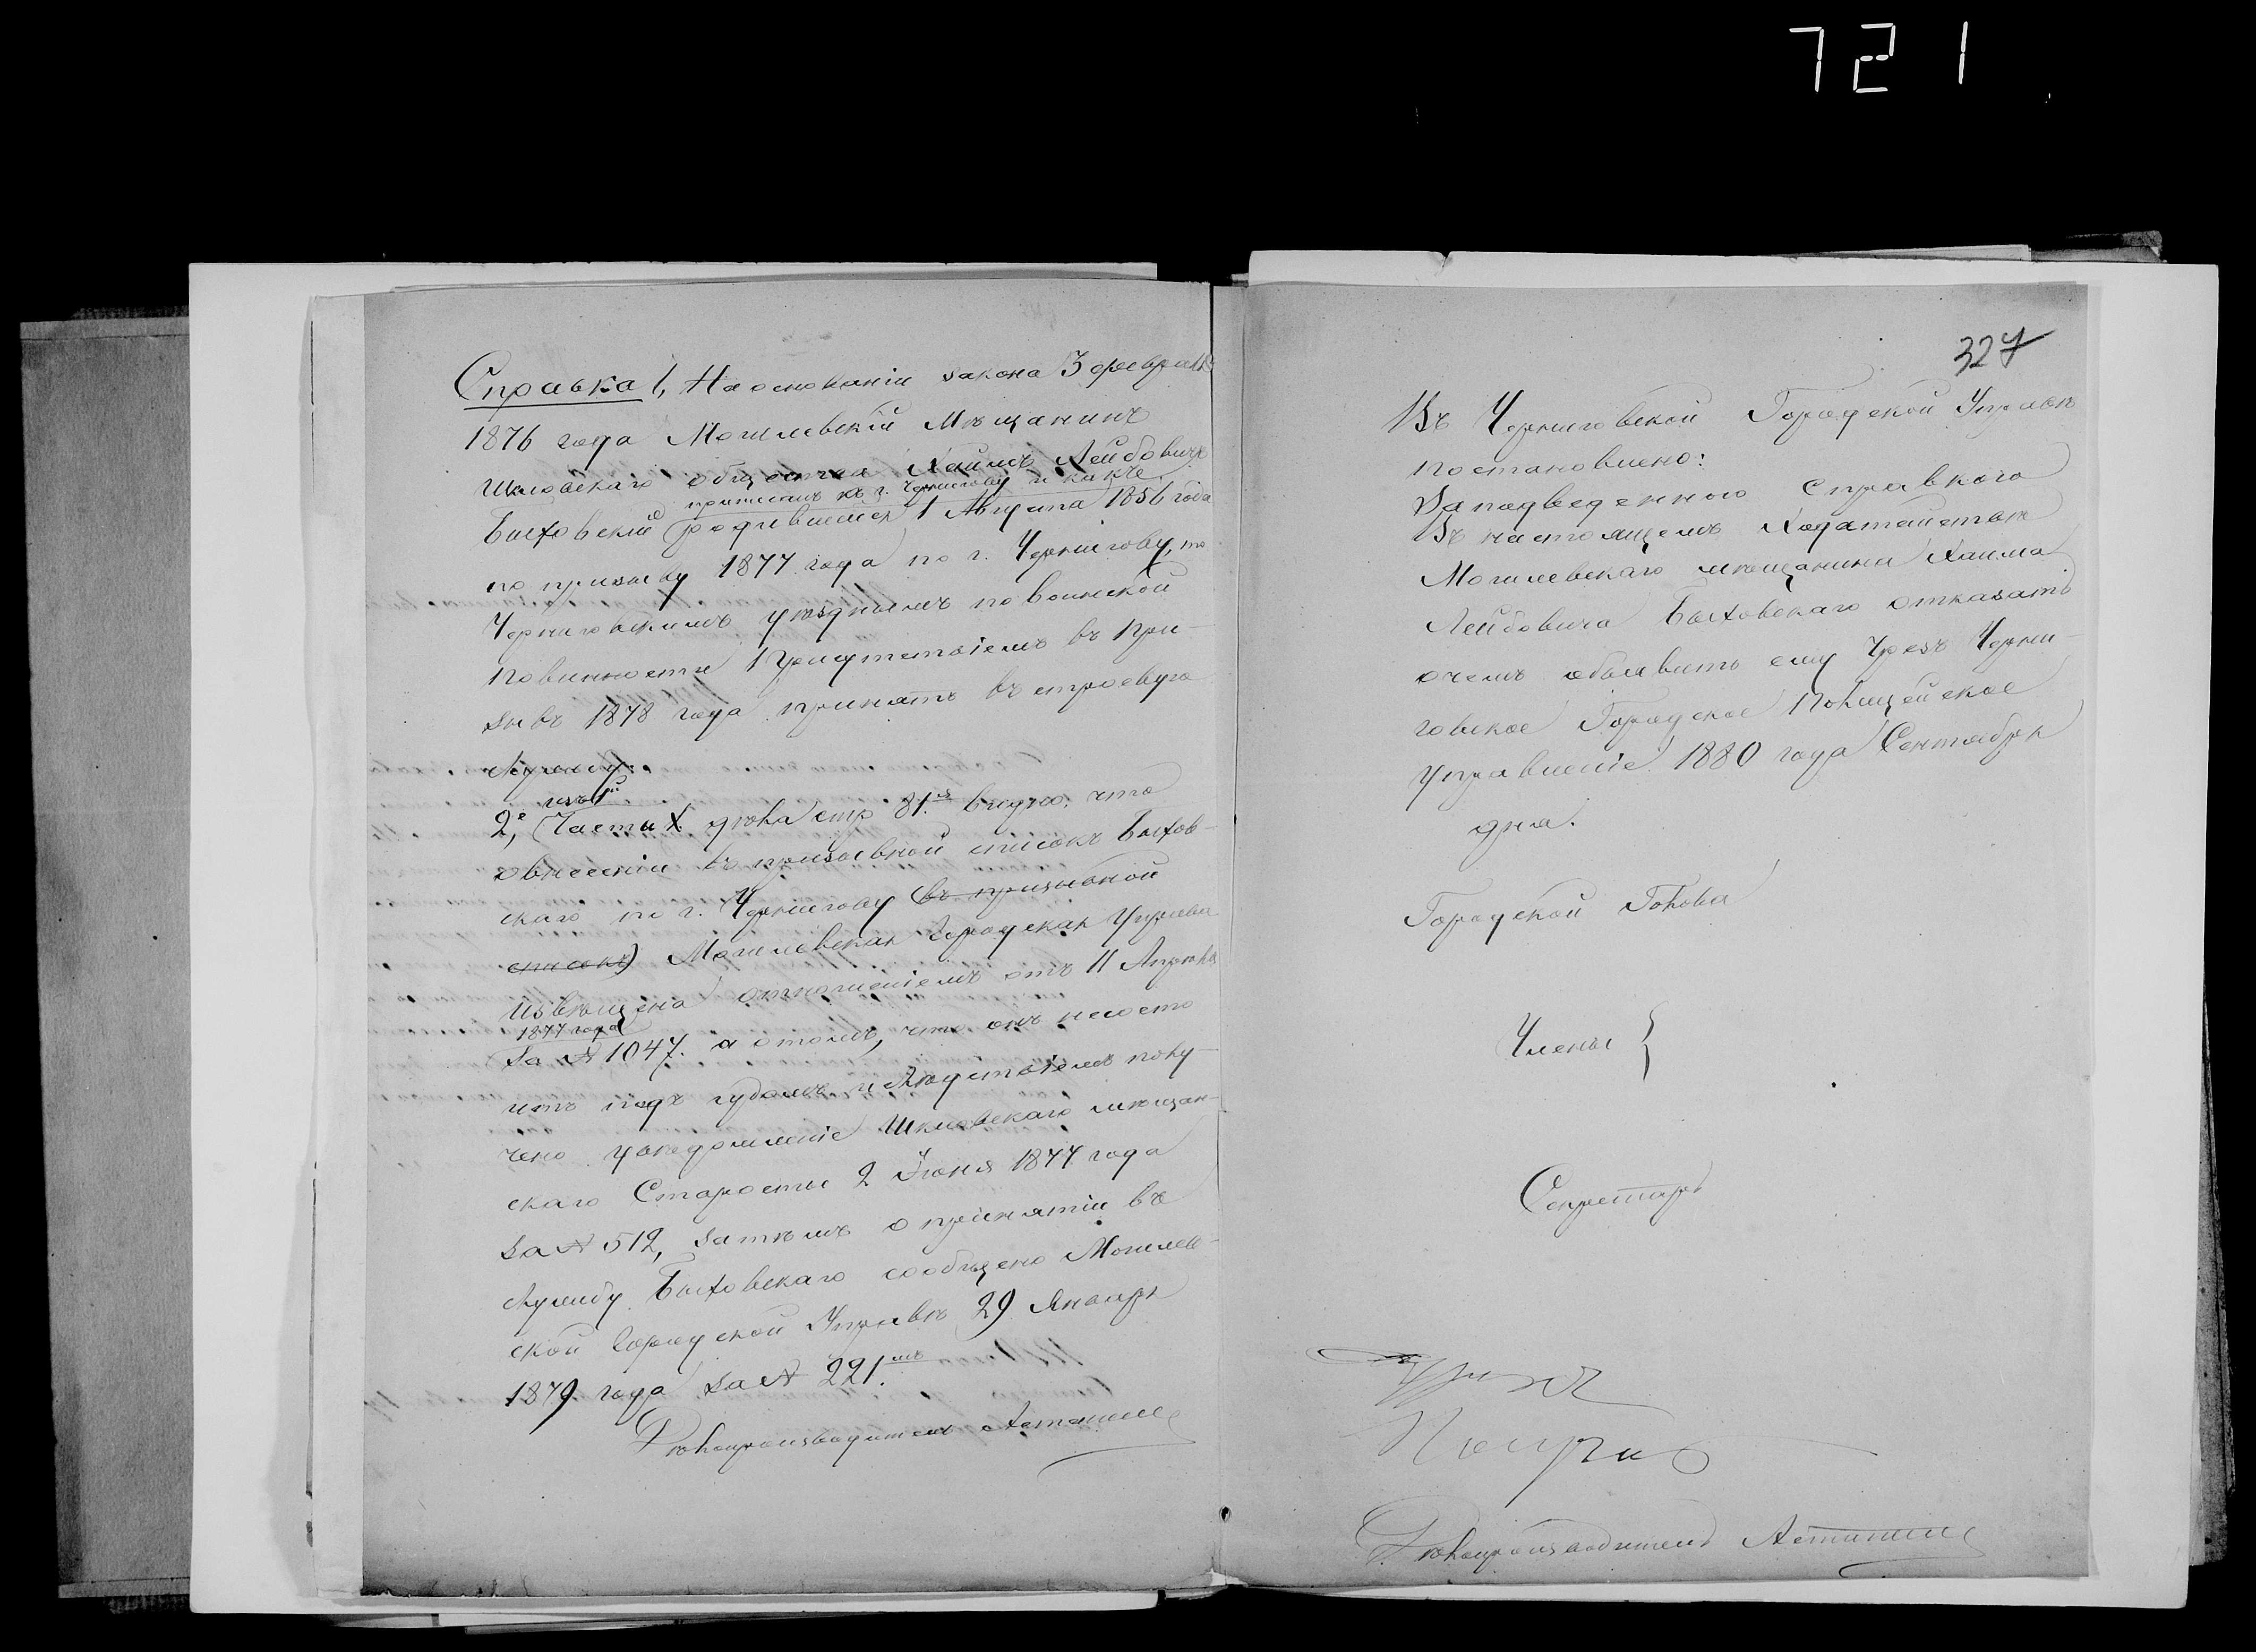 721
Справка 1, На основаніи закона 3 февраля
1876 года Могилевскій Мѣщанинъ
Шкловскаго общества Хаимъ Лейбовичъ
приписанъ къ г. Чернигову и какъ
Быховскій родившійся 1 Августа 1856 года
по призыву 1877 года по г. Чернигову, то
Черниговскимъ уѣзднымъ по воинской
повинности Присутствіемъ въ при-
зывъ 1878 года принятъ въ строевую
службу.
изъ 1й
2е, Части дѣла стр 81. видно, что
о внесеніи въ призывной списокъ Быхов-
скаго по г. Чернигову (въ призывной
списокъ) Могилевская Городская Управа
извѣщена отношеніемъ отъ 11 Апрѣля
1877 года
за № 1047. а отомъ, что онъ несосто
итъ подъ судомъ и слѣдствіемъ полу-
чено увѣдомленіе Шкловскаго мѣщан-
скаго Старосты 2 Іюня 1877 года
за № 512, затѣмъ о принятіи въ
службу Быховскаго сообщено Могилев-
ской Городской Управѣ 29 Января
1879 года за № 221.
Дѣлопроизводитель
327
Въ Черниговской Городской Управѣ
постановлено:
За подведенною справкою
Въ настоящемъ Ходатайствѣ
Могилевскаго мѣщанина Хаима
Лейбовича Быховскаго отказать
о чемъ объявить ему Чрезъ Черни-
говское Городское Полицейское
управленіе. 1880 года Сентября
дня.
Городской Голова
Члены {
Секретарь
Дѣлопроизводитель